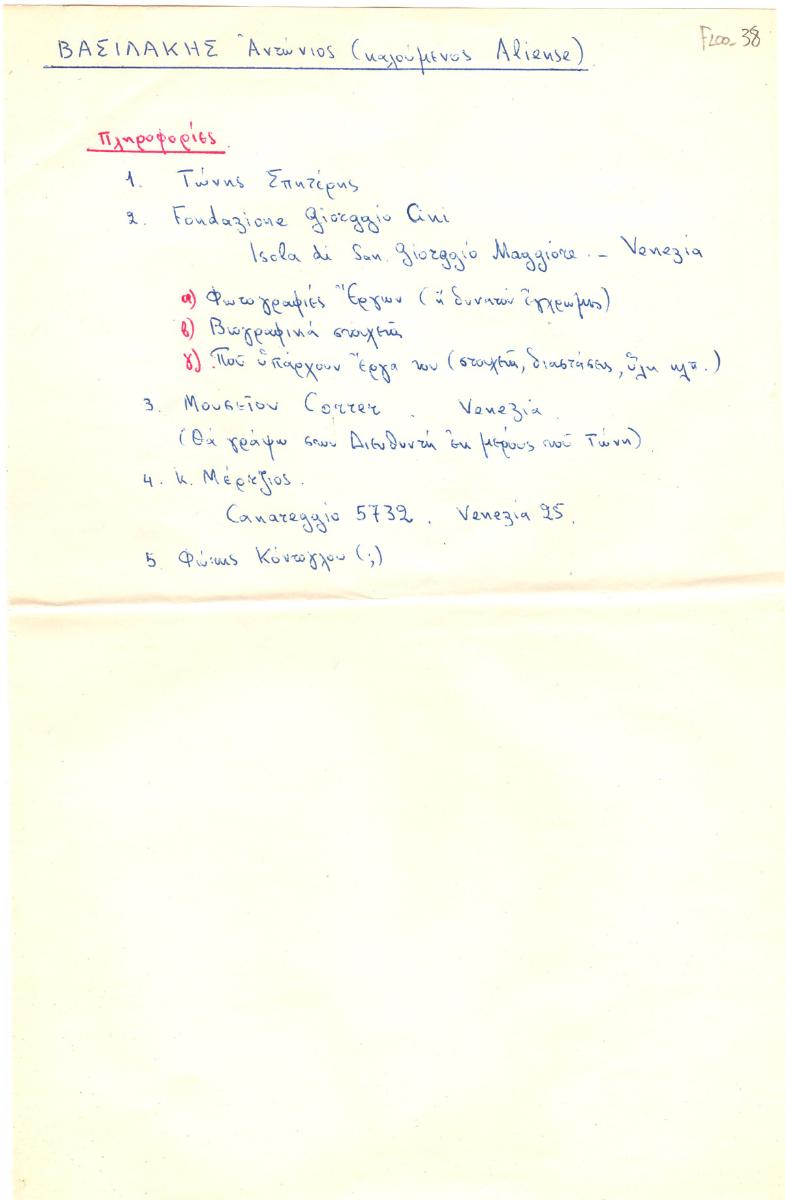 F200-38
ΒΑΣΙΛΑΚΗΣ Ἀντώνιος (καλούμενος Aliense)
Πληροφορίες
1. Τώνης Σπητέρης
2. Fondazione Giorggio Cini
Isola di San Giorggio Maggiore. - Venezia
α) Φωτογραφίες Ἔργων ( δυνατόν ἔγχρωμες)
β) Βιογραφικά στοιχεῖα
γ) Ποῦ ὑπάρχουν Ἔργα του (στοιχεῖα, διαστάσεις, ὕλη κλπ.)
3. Μουσεῖον Correr. Venezia.
(Θά γράψω στον Διευθυντή ἐκ μέρους τοῦ Τώνη)
4. κ. Μέρτζιος.
Canareggio 5732. Venezia 25.
5 Φώτης Κόντογλου (;)